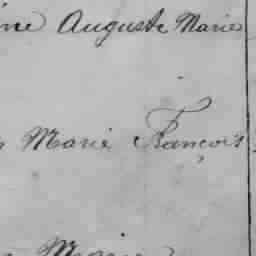 Auguste Marie
Marie François
Marie